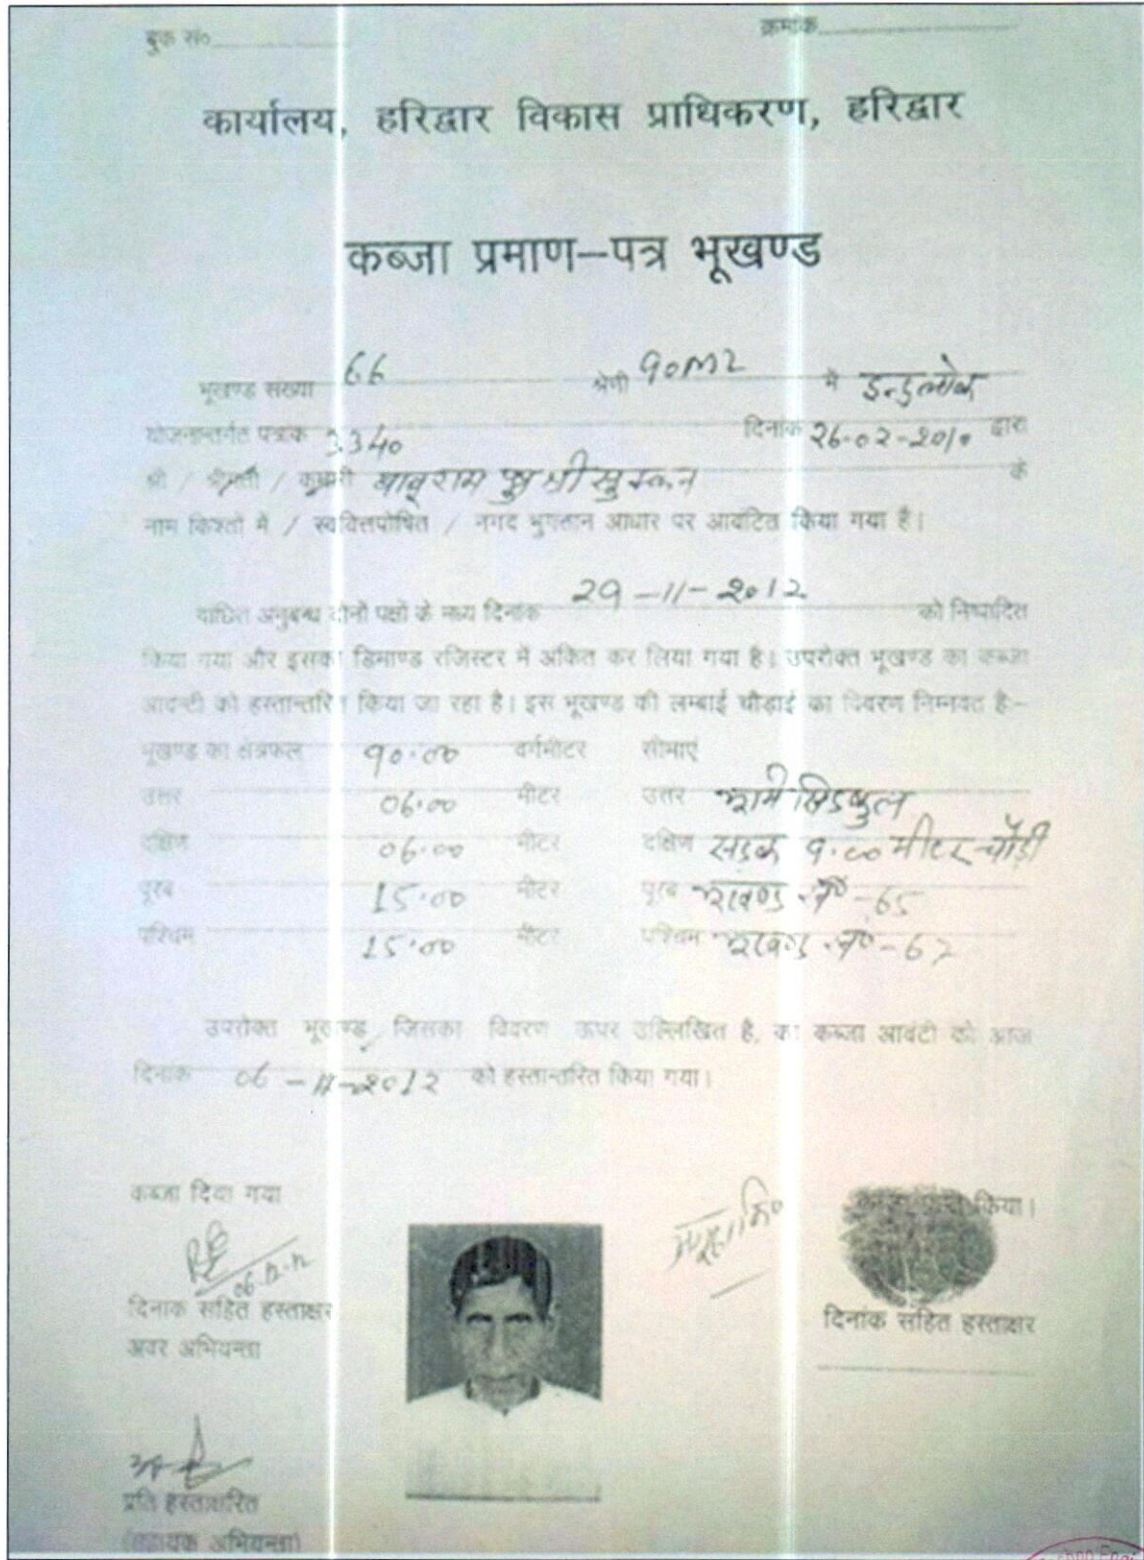 बुक सं०
क्रमांक
कार्यालय, हरिद्वार विकास प्राधिकरण, हरिद्वार
कब्जा प्रमाण–पत्र भूखण्ड
भूखण्ड संख्या 66 श्रेणी 90m2 में इन्दुलोक
योजनान्तर्गत पत्रांक 3340 दिनांक 26-02-2010 द्वारा
श्री / श्रीमती / कुमारी बाबूराम पुत्र श्री के
नाम किश्तों में / स्ववित्तपोषित / नगद भुगतान आधार पर आवंटित किया गया है।
वांछित अनुबन्ध दोनों पक्षों के मध्य दिनांक 29-11-2012 को निष्पादित
किया गया और इसका डिमाण्ड रजिस्टर में अंकित कर लिया गया है। उपरोक्त भूखण्ड का कब्जा
आवन्टी को हस्तान्तरित किया जा रहा है। इस भूखण्ड की लम्बाई चौड़ाई का विवरण निम्नवत है:–
भूखण्ड का क्षेत्रफल 90.00 वर्गमीटर सीमाएं
उत्तर 06.00 मीटर उत्तर सिडकुल
दक्षिण 06.00 मीटर दक्षिण सड़क 9.00 मीटर चौड़ी
पूरब 15.00 मीटर पूरब भूखण्ड नं०-65
पश्चिम 15.00 मीटर पश्चिम भूखण्ड नं०-67
उपरोक्त भूखण्ड, जिसका विवरण ऊपर उल्लिखित है, का कब्जा आवंटी को आज
दिनांक 06-11-2012 को हस्तान्तरित किया गया।
कब्जा दिया गया
किया।
06.12.12
दिनांक सहित हस्ताक्षर
दिनांक सहित हस्ताक्षर
अवर अभियन्ता
प्रति हस्ताक्षरित
(सहायक अभियन्ता)